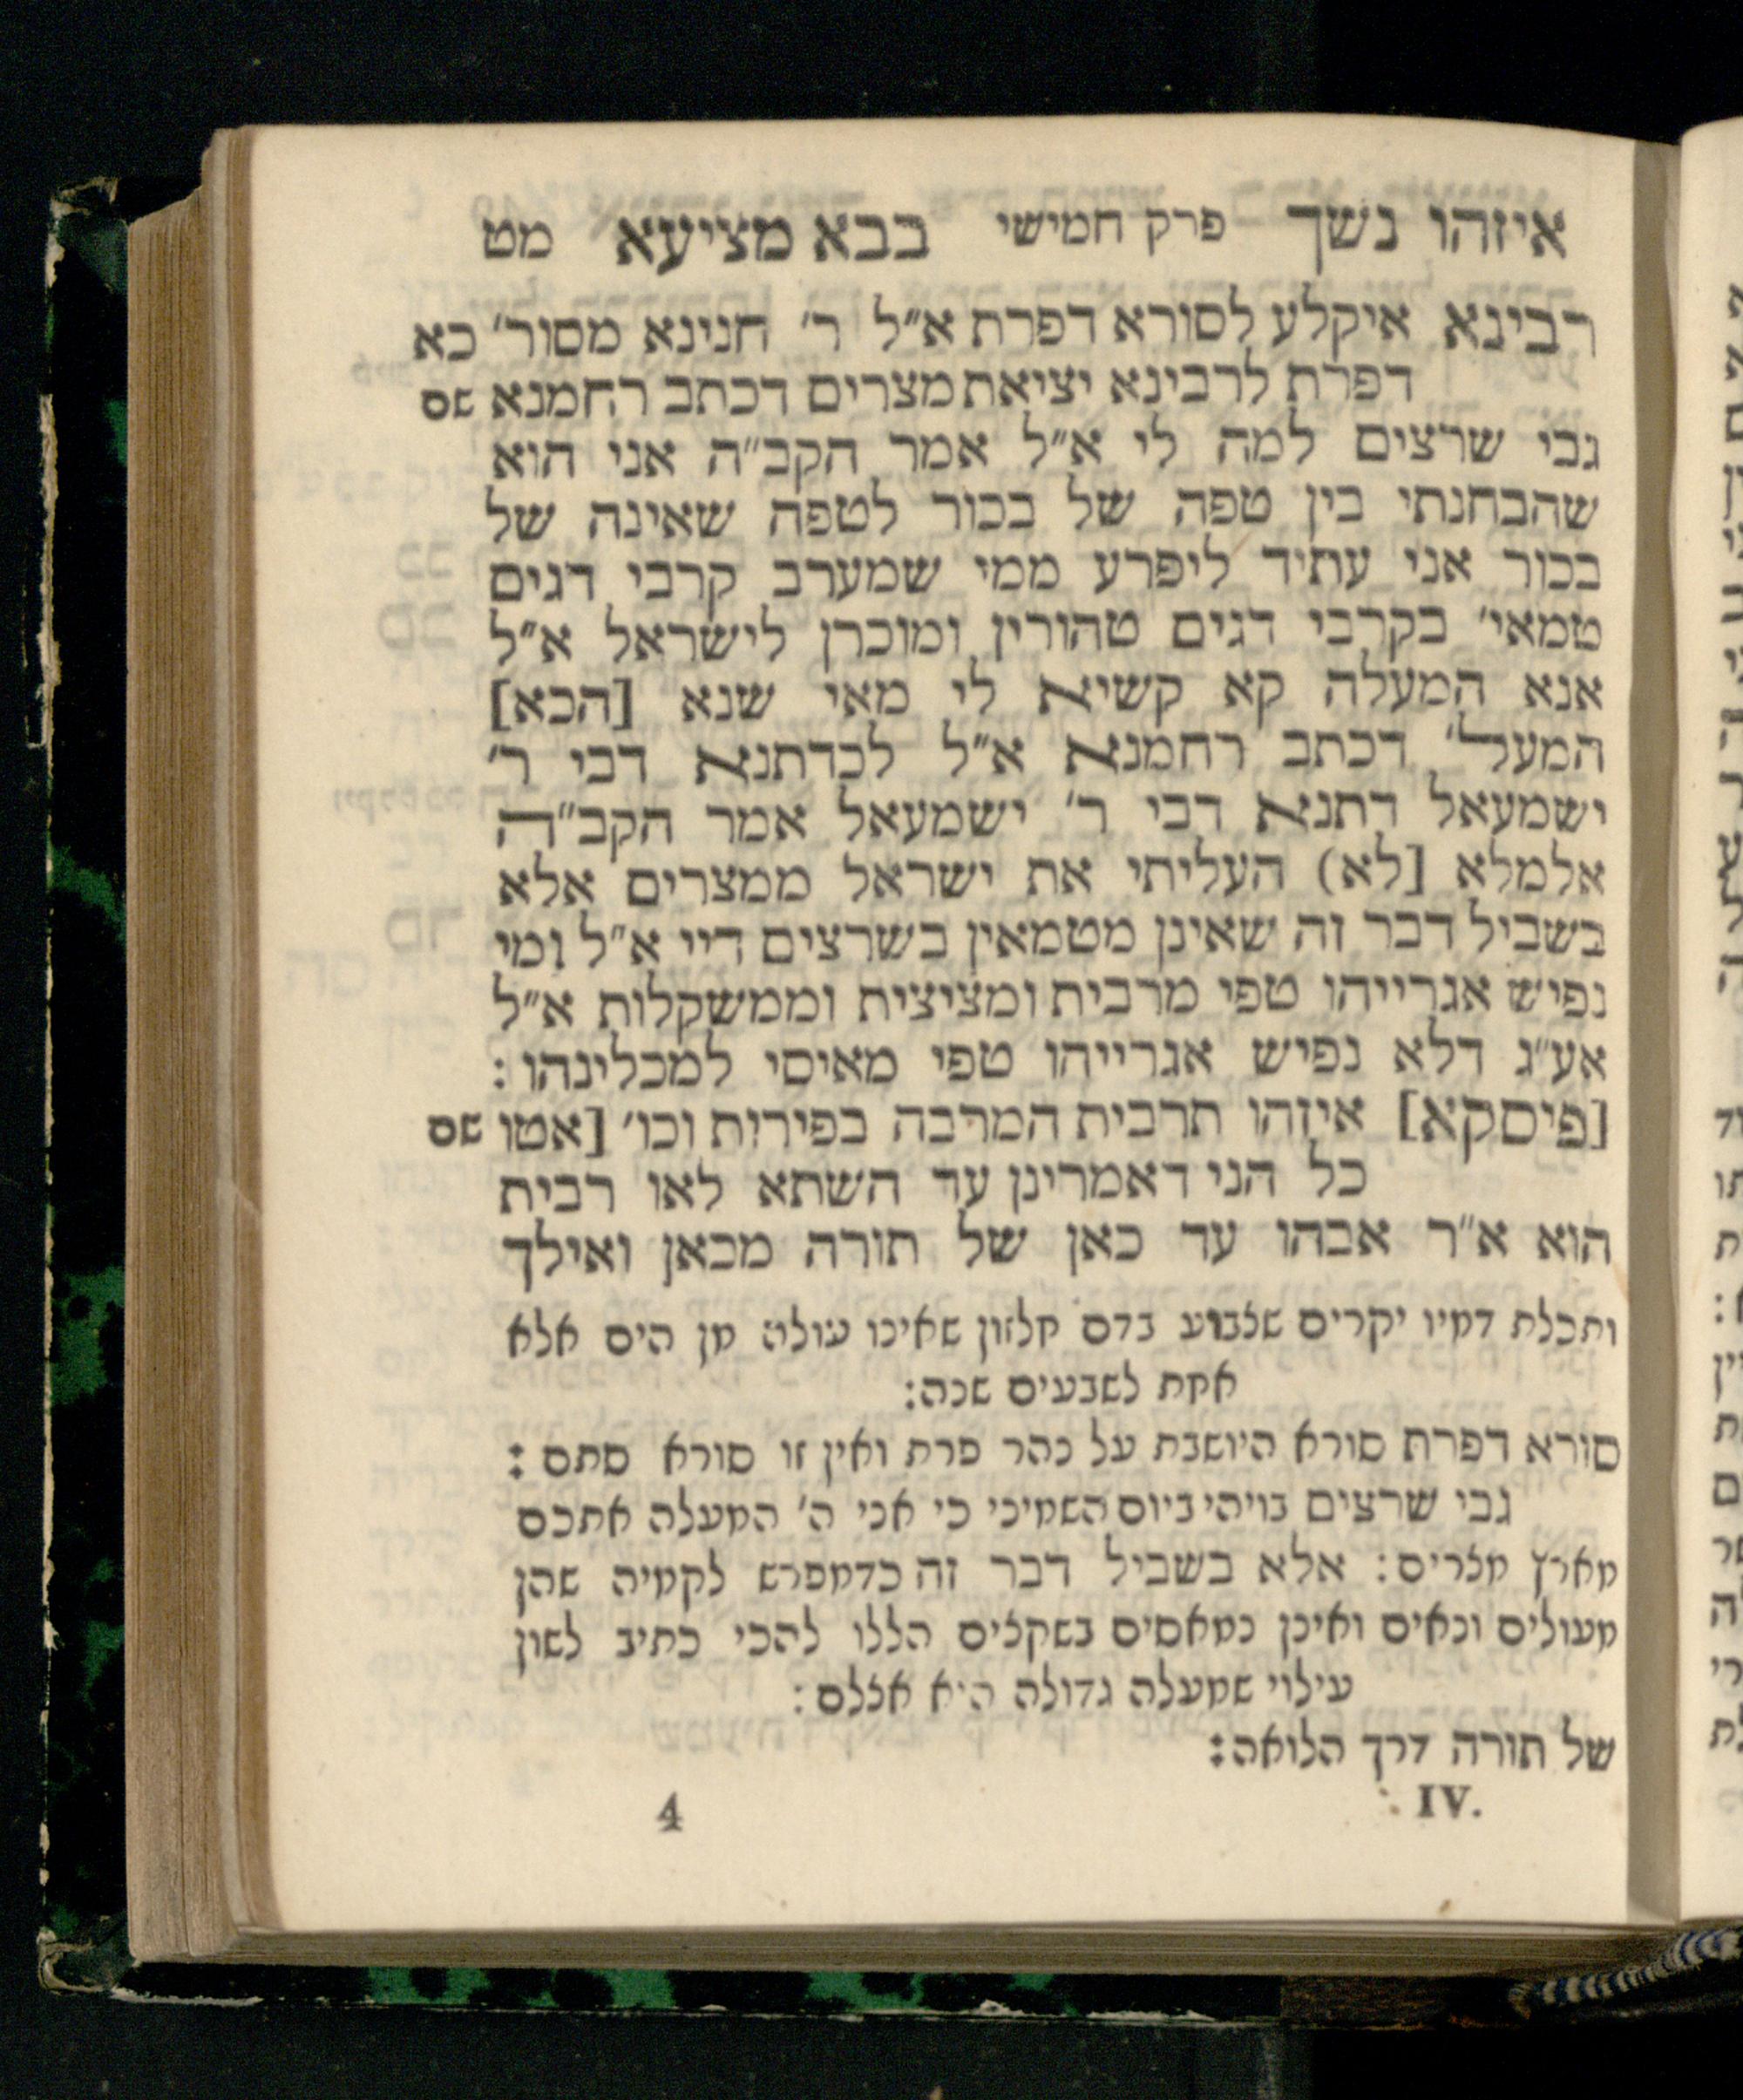 איזהו נשך פרק חמישי בבא מציעא מט
רבינא איקלע לסורא דפרת א״ל ר׳ חנינא מסור׳ כא
דפרת לרבינא יציאת מצרים דכתב רחמנא שם
גבי שרצים למה לי א״ל אמר הקב״ה אני הוא
שהבחנתי בין טפה של בכור לטפה שאינה של
בכור אני עתיד ליפרע ממי שמערב קרבי דגים
טמאי׳ בקרבי דגים טהורין ומוכרן לישראל א״ל
אנא המעלה קא קשיא לי מאי שנא [הכא]
המעל׳ דכתב רחמנא א״ל לכדתנא דבי ר׳
ישמעאל דתנא דבי ר׳ ישמעאל אמר הקב״ה
אלמלא [לא) העליתי את ישראל ממצרים אלא
בשביל דבר זה שאינן מטמאין בשרצים דיי א״ל ומי
נפיש אגרייהו טפי מרבית ומציצית וממשקלות א״ל
אע״ג דלא נפיש אגרייהו טפי מאיסי למכלינהו :
[פיסקא] איזהו תרבית המרבה בפירות וכו׳ [אטו שם
כל הני דאמרינן עד השתא לאו רבית
הוא א״ר אבהו עד כאן של תורה מכאן ואילך
ותכלת דמיו יקרים שצבוע בדם חלזון שאינו עולה מן הים אלא
אחת לשבעים שנה:
סורא דפרת סורא היושבת על נהר פרת ואין זו סורא סתם :
גבי שרצים בויהי ביום השמיני כי אני ה׳ המעלה אתכם
מארץ מצרים: אלא בשביל דבר זה כדמפרש לקמיה שהן
מעולים ונאים ואינן נמאסים בשקצים הללו להכי כתיב לשון
עילוי שמעלה גדולה היא אצלם:
של תורה דרך הלואה:
IV. 4